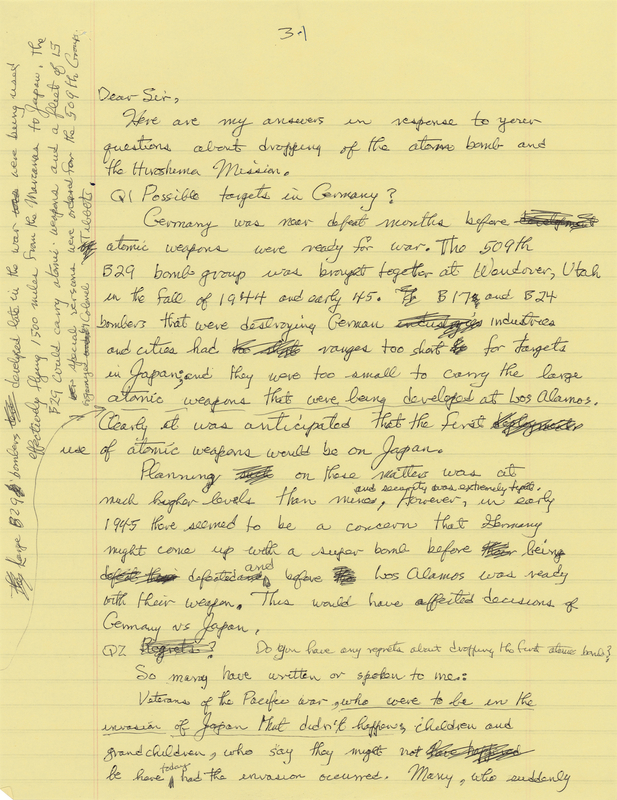 3-1
Dear Sir,
Here are my answers in response to your
questions about dropping of the atom bomb and
the Hiroshima Mission.
Q1 Possible targets in Germany?
Germany was near defeat months before
atomic weapons were ready for war. The 509th
B29 bomb group was brought together at Wendover, Utah
in the fall of 1944 and early 45. B17s and B24
bombers that were destroying German industries
and cities had ranges too short for targets
in Japan, and they were too small to carry the large
atomic weapons that were being developed at Los Alamos.
Clearly it was anticipated that the first
use of atomic weapons would be on Japan.
Planning on these matters was at
much higher levels than mine, and security was extremely tight. However, in early
1945 there seemed to be a concern that Germany
might come up with a super bomb before being
defeated and before Los Alamos was ready
with their weapon. This would have affected decisions of
Germany vs Japan.
Q2 Regrets? Do you have any regrets about dropping the first atomic bomb?
So many have written or spoken to me:
Veterans of the Pacific war, who were to be in the
invasion of Japan that didn't happen, children and
grandchildren, who say they might not
be here today had the invasion occurred. Many, who suddenly
large B29 bombers developed late in the war were being used
effectively flying 1500 miles from the Marianas to Japan. The
B29 could carry atomic weapons and a fleet of 15
special versions were ordered for the 509th Group
organized under Colonel Tibbets.